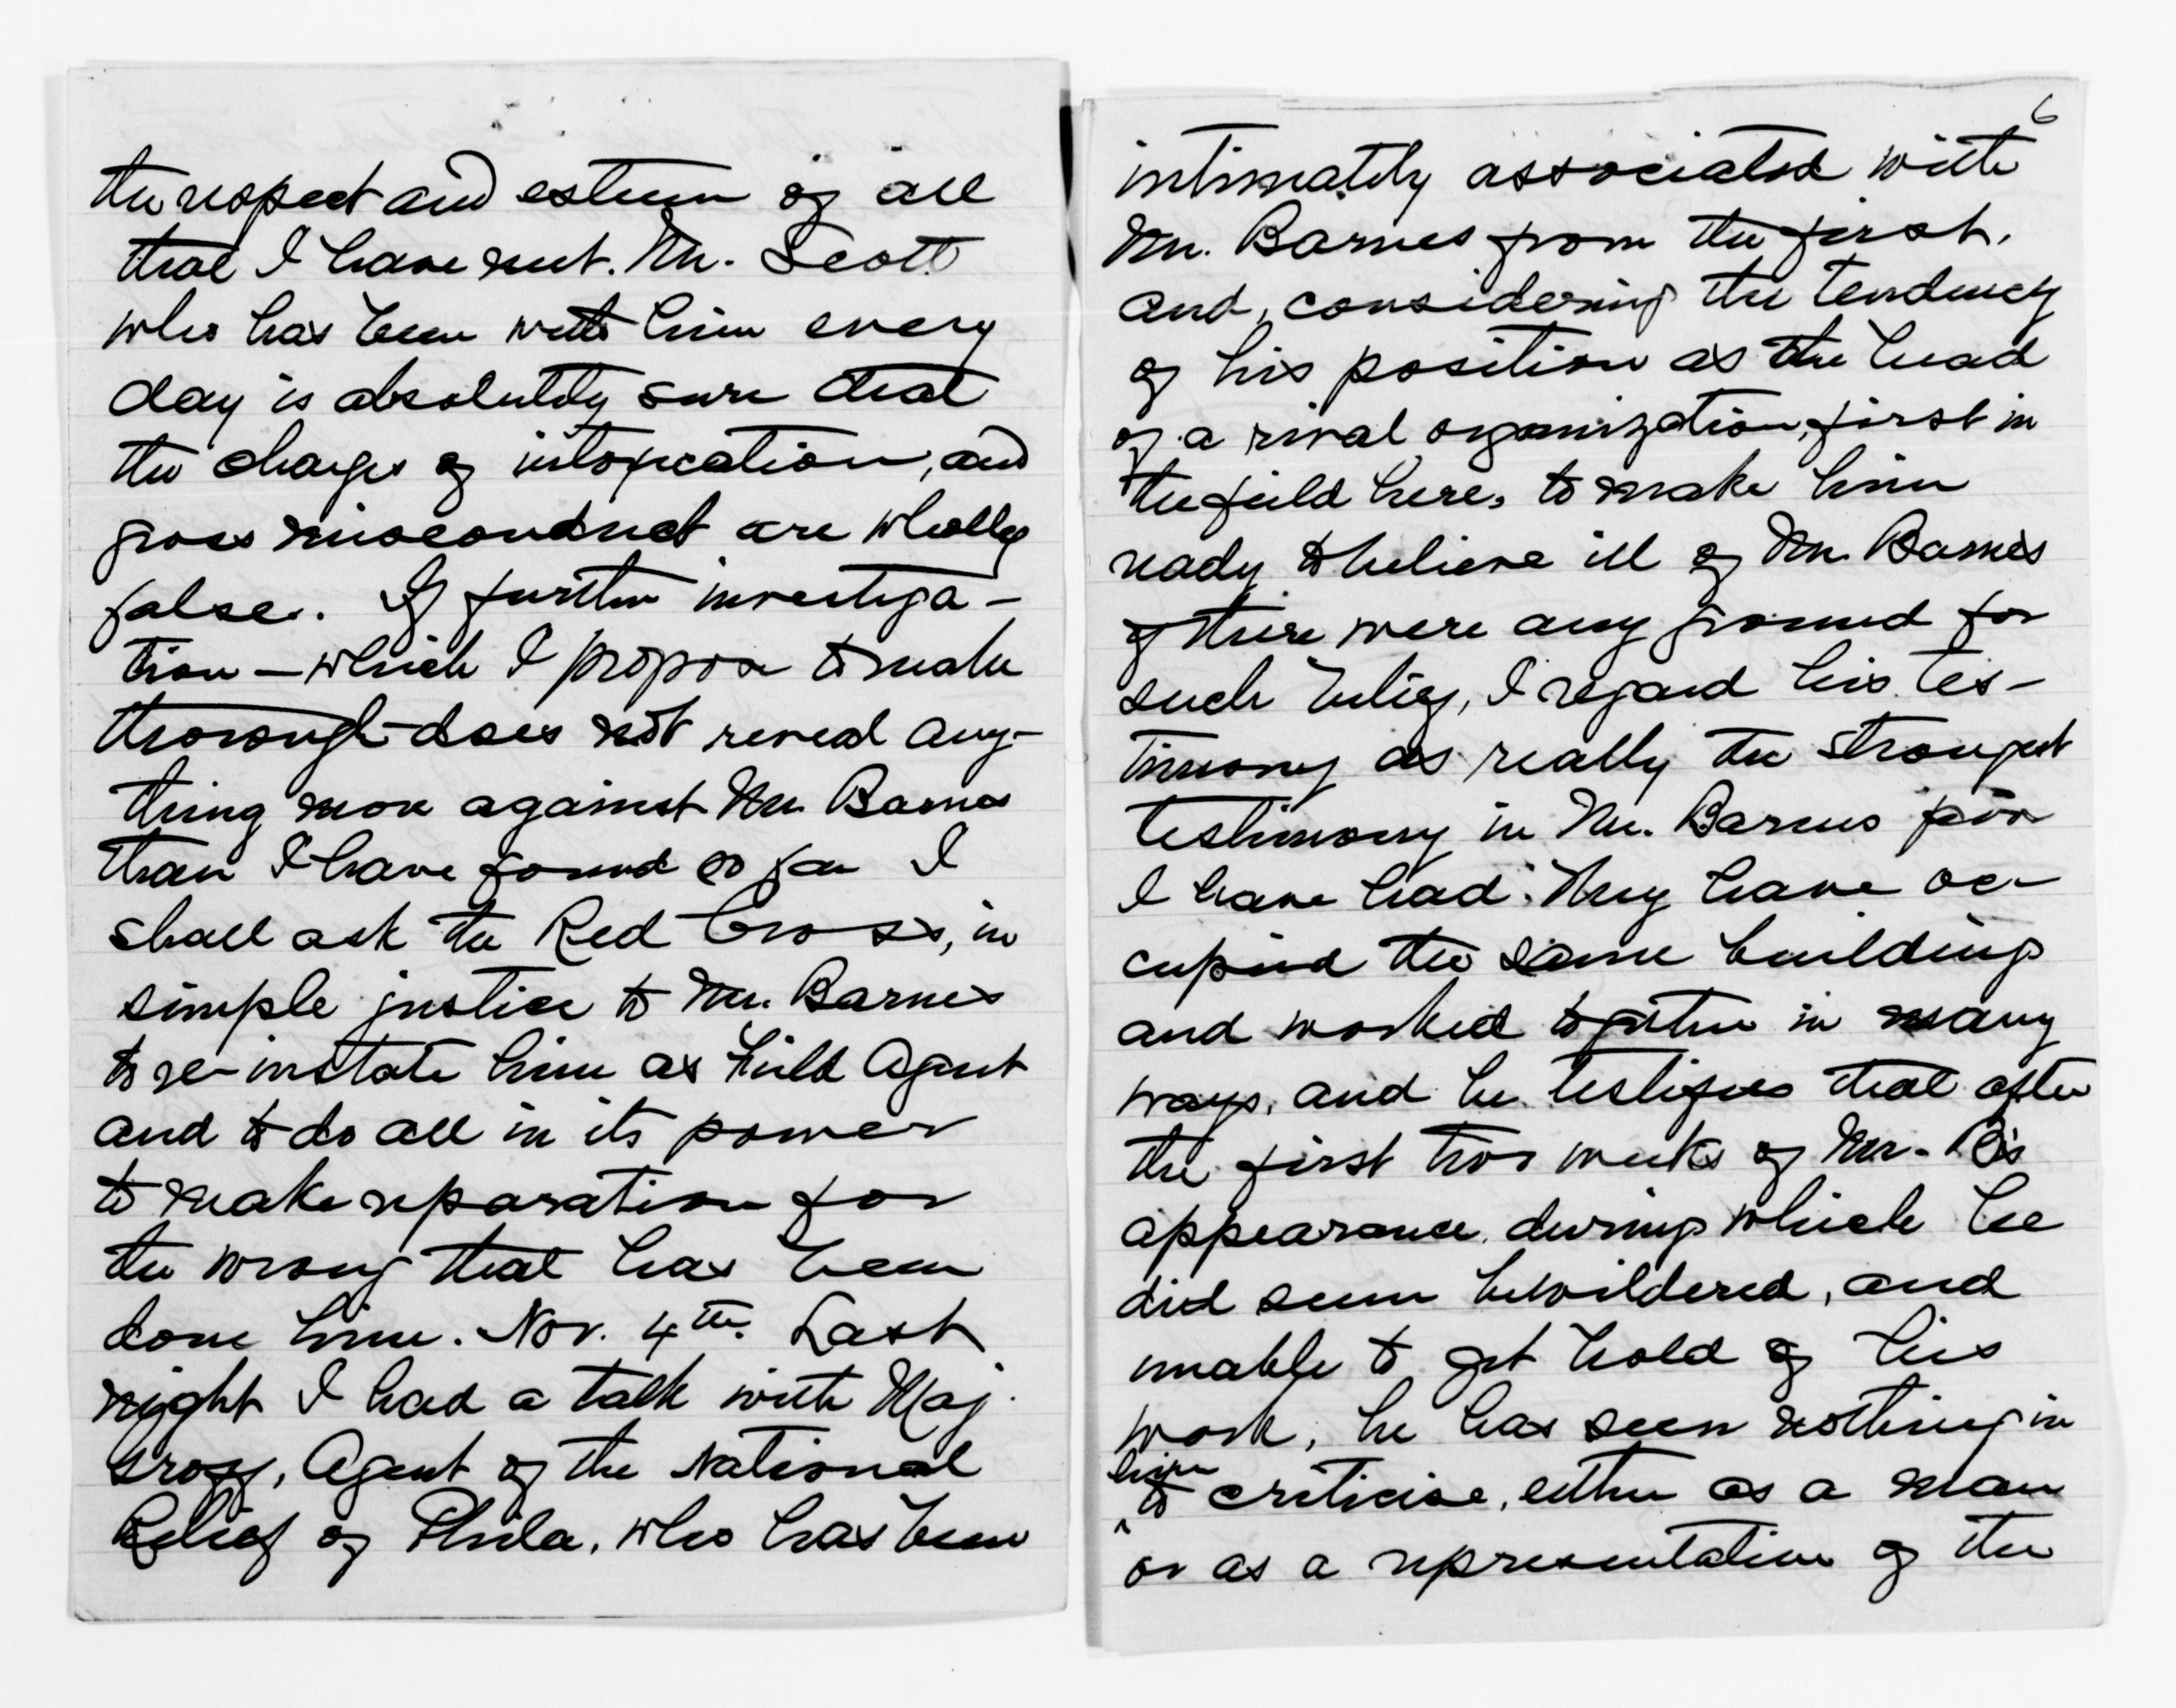 the respect and esteem of all
that I have met. Mr. Scott
who has been with him every
day is absolutely sure that
the charges of intoxication, and
gross misconduct are wholly
false. If further investiga-
tion — which I propose to make
thorough — does not reveal any-
thing more against Mr. Barnes
than I have found so far I
shall ask the Red Cross, in
simple justice to Mr. Barnes
to re-instate him as Field Agent
and to do all in its power
to make reparation for
the wrong that has been
done him. Nov. 4th. Last
night I had a talk with Maj.
Agent of the National
Relief of Phila, who has been
6
intimately associated with
Mr. Barnes from the first,
and, considering the tendency
of his position as the head
of a rival organization, first in
the field here, to make him
ready to believe ill of Mr. Barnes
if there were any ground for
such belief, I regard his tes-
timony as really the strongest
testimony in Mr. Barnes favor
I have had. They have oc-
cupied the same building
and worked together in many
ways, and he testifies that after
the first two weeks of Mr. B's
appearance, during which he
did seem bewildered, and
unable to get hold of his
work, he has seen nothing in
him
to criticise, either as a man
or as a representative of the